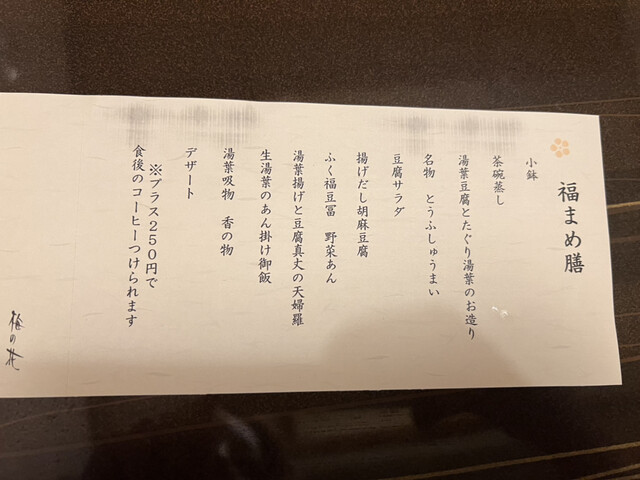 福まめ膳
小鉢
茶碗蒸し
湯葉豆腐とたぐり湯葉のお造り
名物　とうふしゅうまい
豆腐サラダ
揚げだし胡麻豆腐
ふく福豆冨　野菜あん
湯葉揚げと豆腐真丈の天婦羅
生湯葉のあん掛け御飯
湯葉吸物　香の物
デザート
※プラス２５０円で
食後のコーヒーつけられます
梅の花